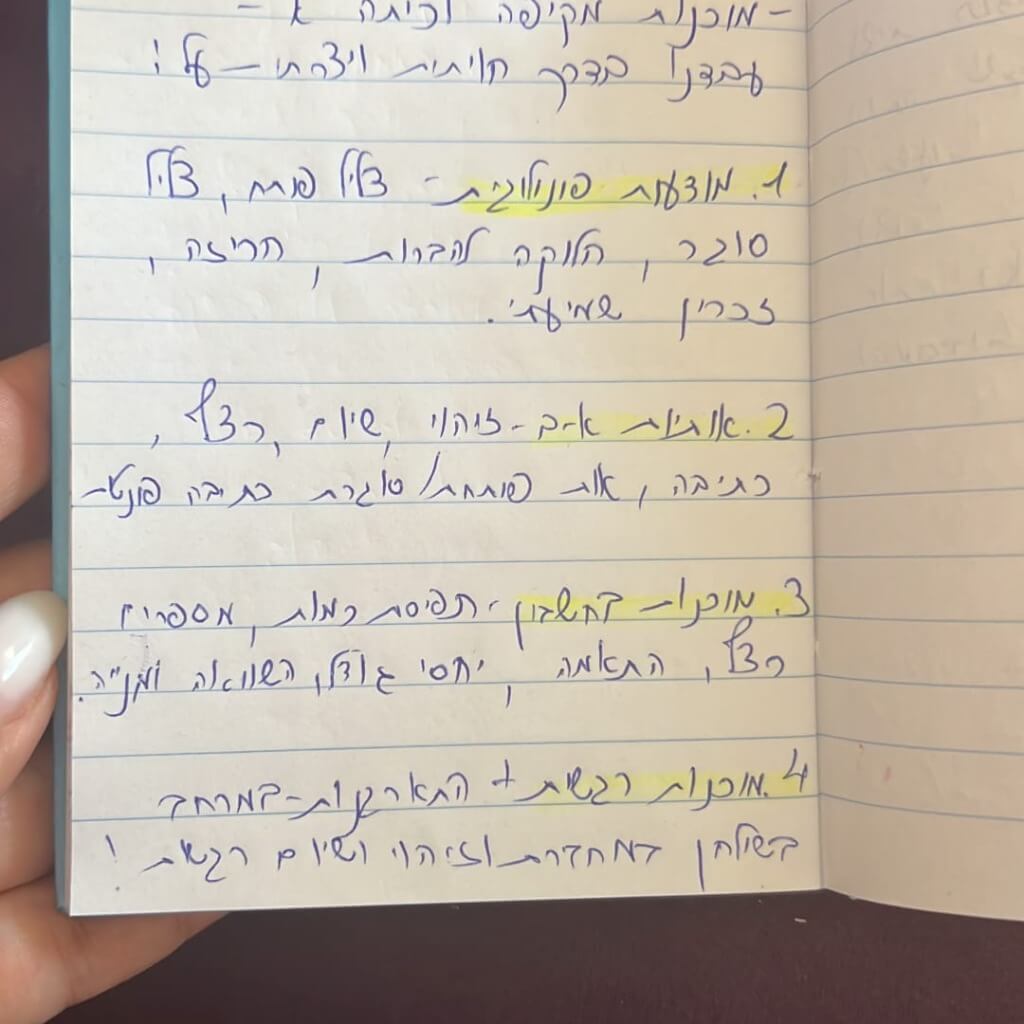 -מוכנות מקיפה לכיתה א -
עבדנו בדרך חויתית ויצרתי - על!
1. מודעות פונולוגית - צליל פותח, צליל
סוגר, חלוקה להברות, חריזה,
זכרון שמיעתי.
2. אותיות א-ב - זיהוי, שיום, רצף,
כתיבה, אות פותחת/ סוגרת כתיבה פונט-
3. מוכנות בחשבון - תפיסת כמות, מספרים
רצף, התאמה, יחסי גודל, השוואה ומנייה.
4. מוכנות רגשית + התארגנות - במרחב
בשולחן במחברת וזיהוי ושיום רגשות!